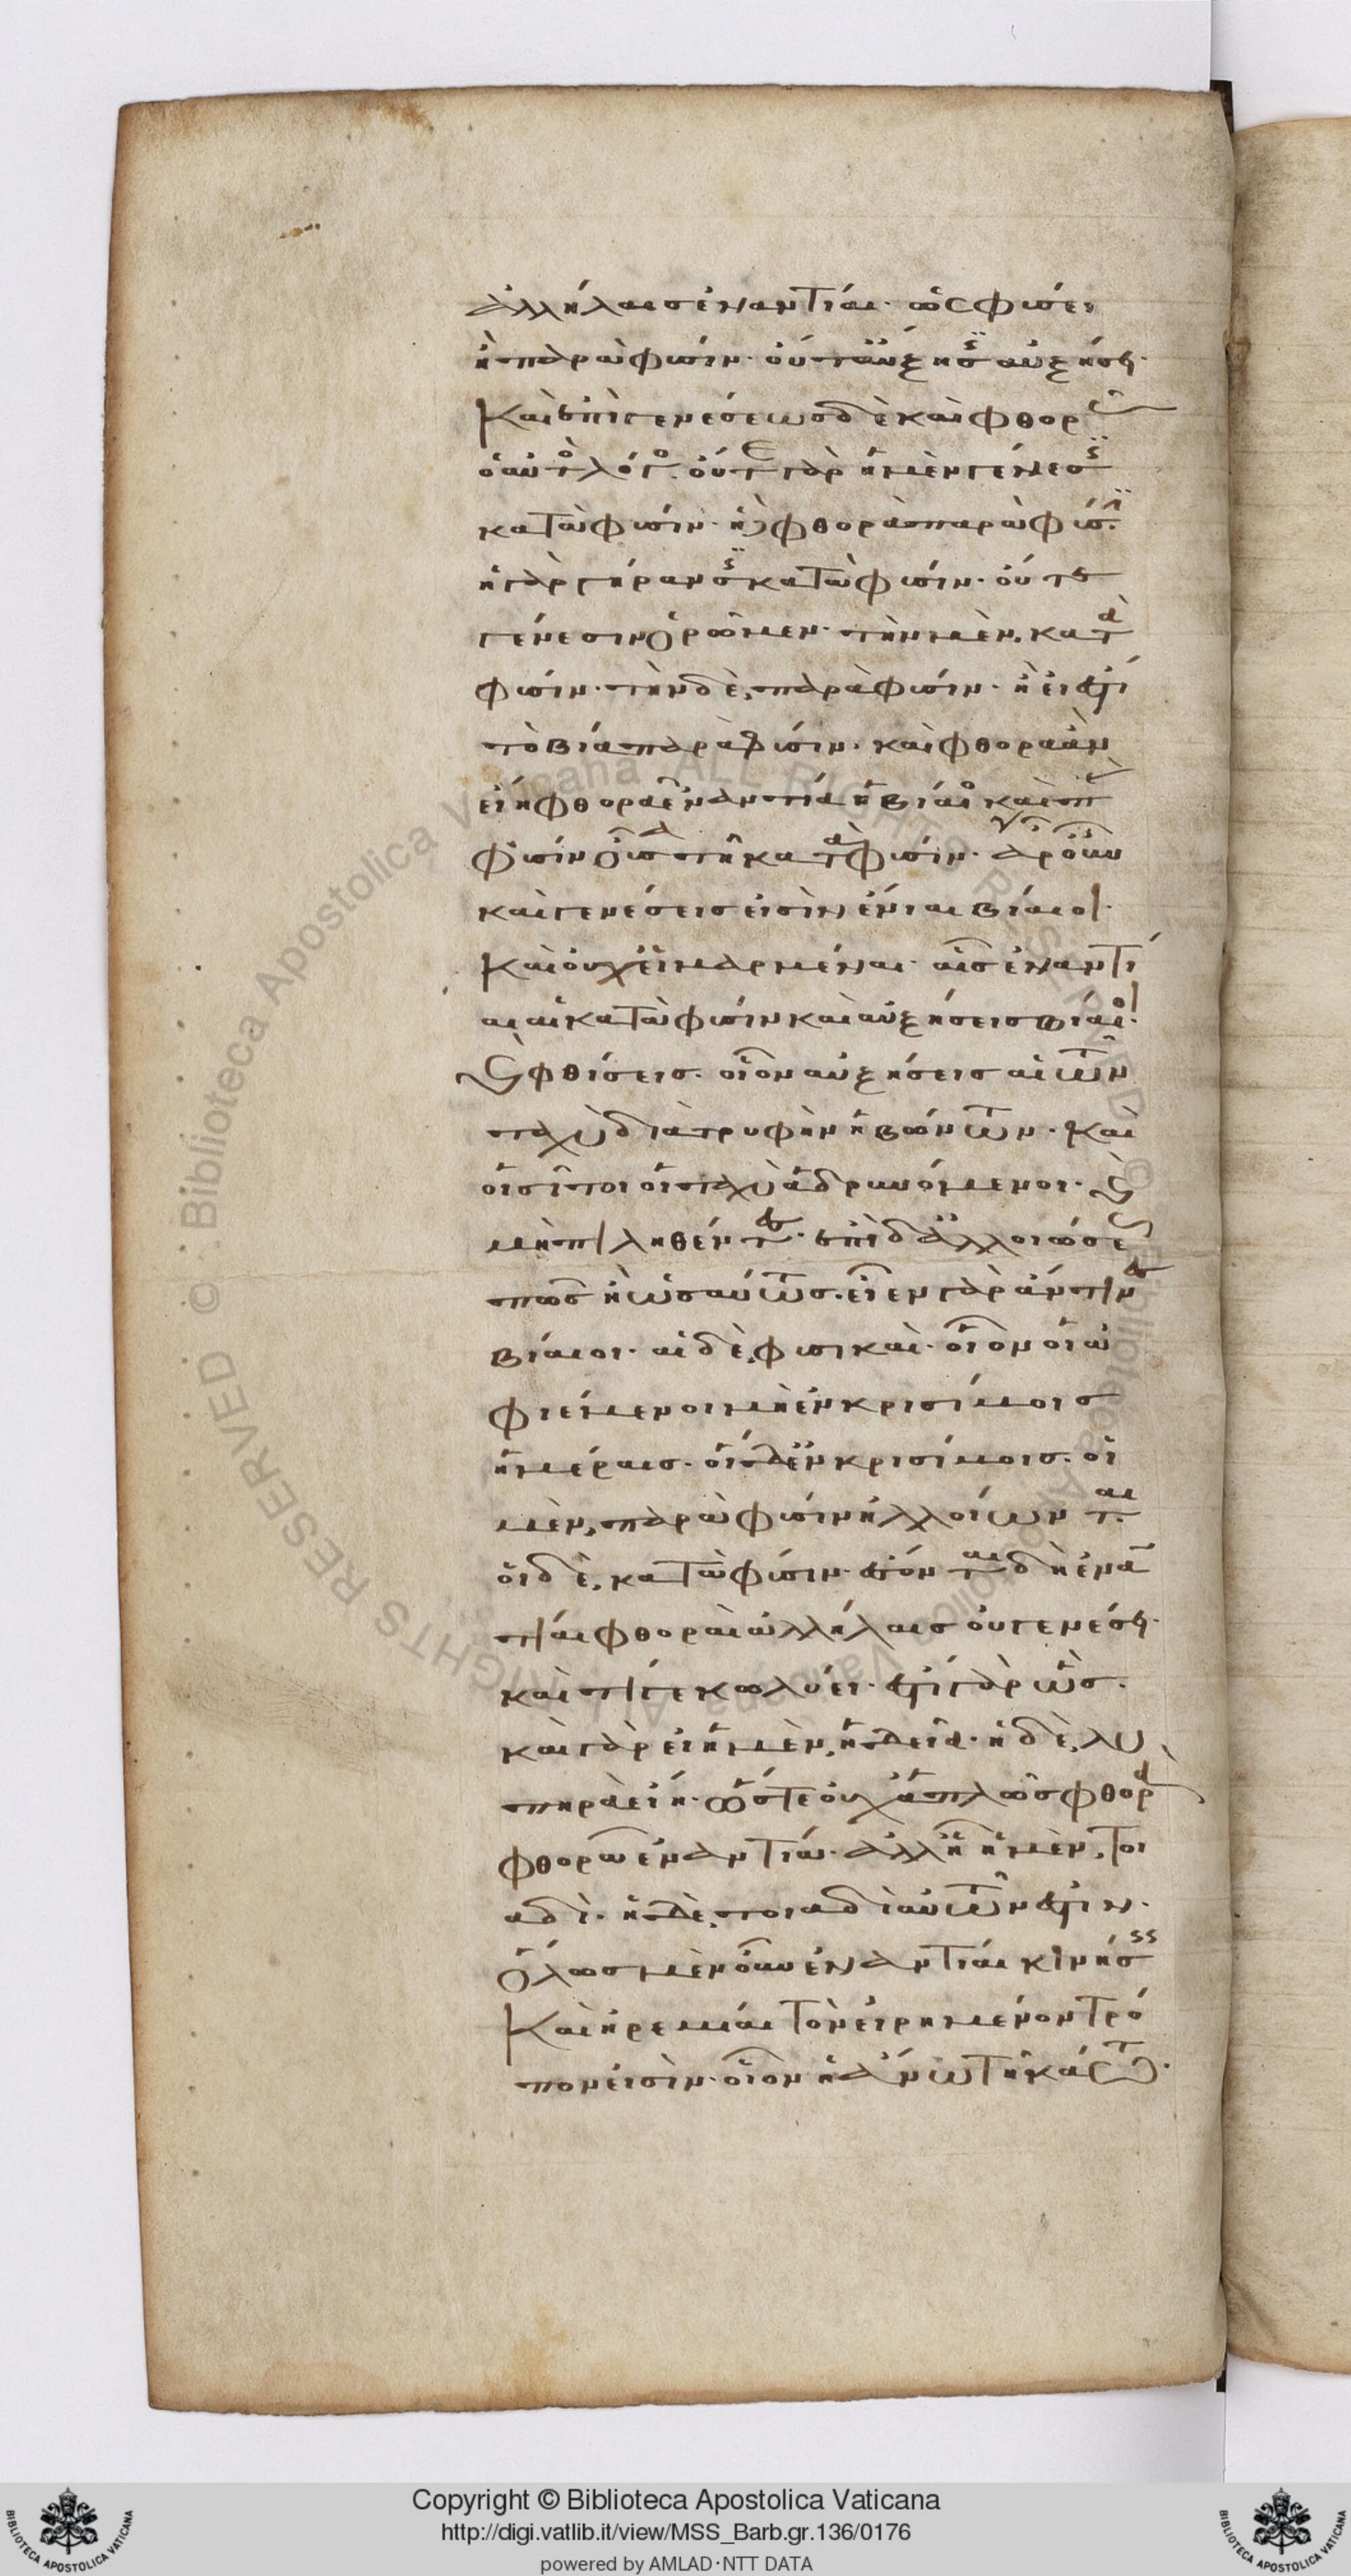 ἀλλήλαις ἐναντίαι· ὡς φύσει
ἢ παρὰ φύσιν· οὔτ' αὔξησις αὐξήσει·
Καὶ ἐπὶ γενέσεως δὲ καὶ φθορᾶς
ὁ αὐτὸς λόγος· οὔτε γὰρ ἡ μὲν γένεσις
κατὰ φύσιν· ἡ δὲ φθορὰ παρὰ φύσιν·
ἡ γὰρ γήρανσις κατὰ φύσιν· οὔτε
γένεσιν ὁρῶμεν· τὴν μὲν, κατὰ
φύσιν· τὴν δὲ, παρὰ φύσιν· ἢ εἰ ἐστὶ
τὸ βία παρὰ φύσιν· καὶ φθορὰ ἂν
εἴη φθορᾶ ἐναντία ἡ βίαιος καὶ παρὰ
φύσιν οὖσα τῆ κατὰ φύσιν· ἆρ' οὖν
καὶ γενέσεις εἰσὶν ἔνιαι βίαιοι·
Καὶ οὐχ εἱμαρμέναι· αἷς ἐναντί
αι αἱ κατὰ φύσιν καὶ αὐξήσεις βίαιοι·
καὶ φθίσεις· οἷον αὐξήσεις αἱ τῶν
ταχὺ διὰ τρυφὴν ἡβώντων· καὶ
οἱ σῖτοι οἱ ταχὺ ἁδρυνόμενοι· καὶ
μὴ πιληθέντες· ἐπὶ δ' ἀλλοιώσεως
πῶς ἢ ὡσαύτως· εἶεν γὰρ ἄν τινες
βίαιοι· αἱ δὲ, φυσικαὶ· οἷον οἱ ἀ
φιέμενοι μὴ ἐν κρισίμοις
ἡμέραις· οἱ δ' ἐν κρισίμοις· οἱ
μὲν, παρὰ φύσιν ἠλλοίωνται
οἱ δὲ, κατὰ φύσιν· ἔσονται δὴ ἐναν
τίαι φθοραὶ ἀλλήλαις οὐ γενέσει·
καὶ τί γε κωλύει· ἔστι γὰρ ὡς·
καὶ γὰρ εἰ ἡ μὲν, ἡδεῖα· ἡ δὲ, λυ
πηρὰ εἴη· ὥστε οὐχ ἁπλῶς φθορὰ
φθορᾶ ἐναντία· ἀλλ' ἧ ἡ μὲν, τοι
αδὶ· ἡ δὲ, τοιαδὶ αὐτῶν ἐστίν·
ὅλως μὲν οὖν ἐναντίαι κινήσεις
Καὶ ἠρεμίαι τὸν εἰρημένον τρό
πον εἰσίν· οἷον ἡ ἄνω τῆ κάτω·
Copyright © Biblioteca Apostolica Vaticana
http://digi.vatlib.it/view/MSS_Barb.gr.136/0176
powered by AMLAD·NTT DATA